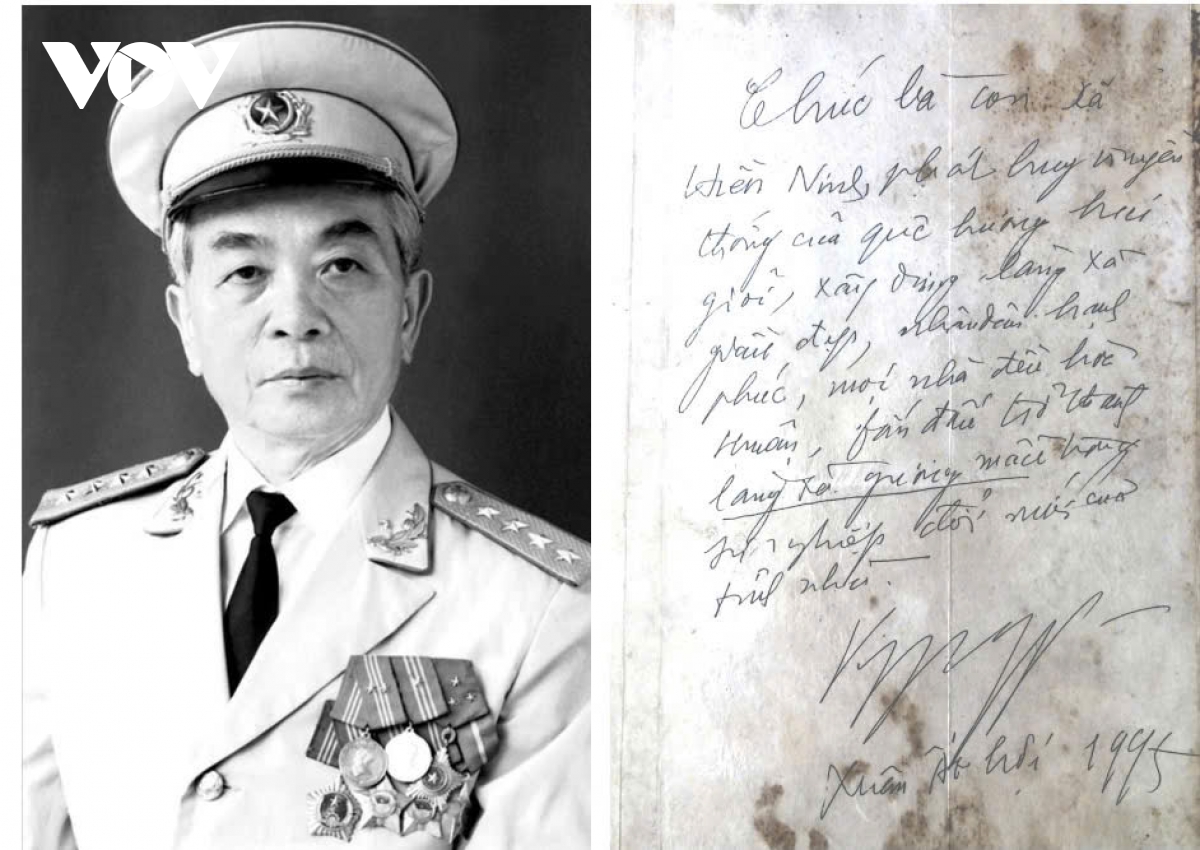 VOV
Chúc bà con xã
Hiền Ninh, phát huy truyền
thống của quê hương hai
giỏi, xây dựng làng xã
giàu đẹp, nhân dân hạnh
phúc, mọi nhà đều hòa
thuận, phấn đấu trở thành
làng xã gương mẫu trong
sự nghiệp đổi mới của
tỉnh nhà.
Xuân Ất hợi 1995